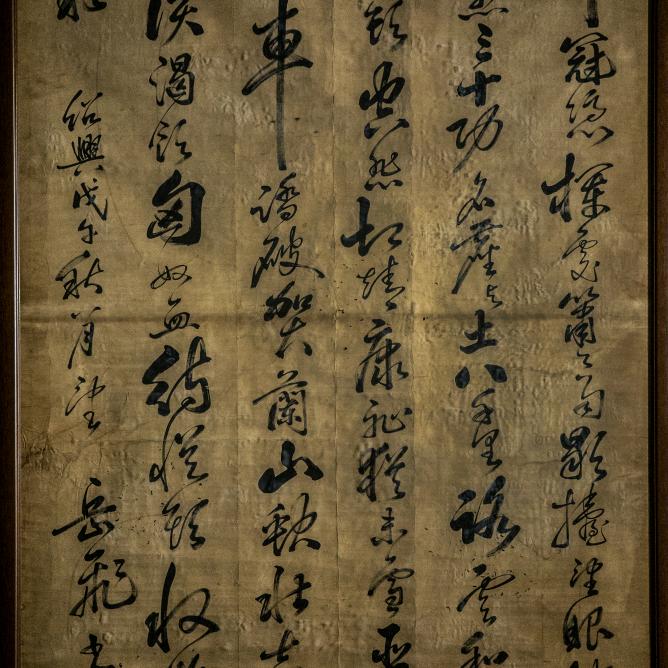 冠憑欄處瀟々雨歇擡望眼
烈三十功名塵與土八千里路雲和
頭空悲切靖康耻猶未雪臣
車踏破賀蘭山缺壯志
談渴飲匈奴血待從頭收
紹興戊午秋八月望 岳飛書